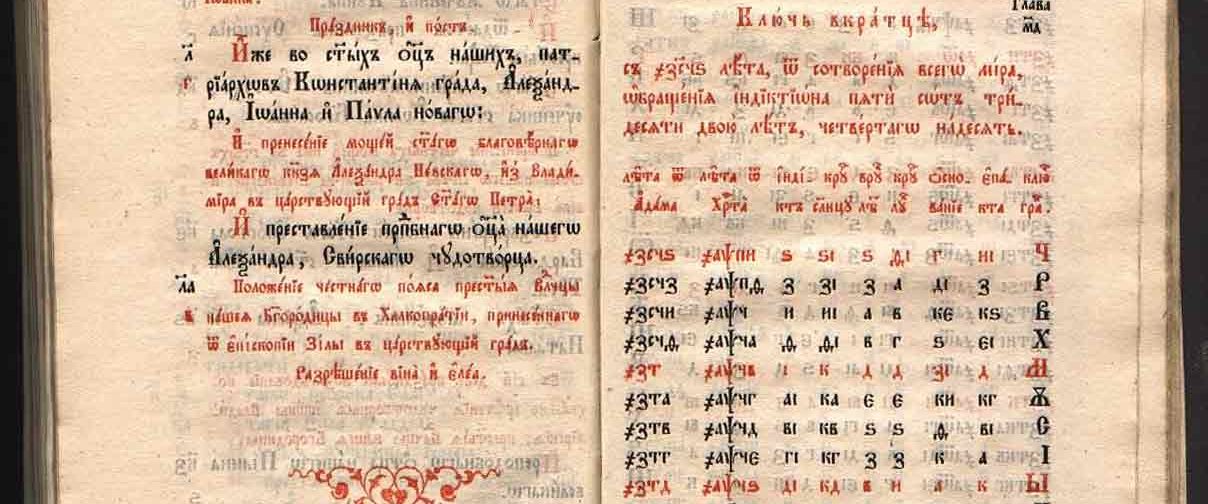 Пра́здникъ, и҆ по́стъ.
л҃ И҆́же во ст҃ы́хъ ѻ҆ц҃ъ на́шихъ, пат-
ѕ҃ рїа́рхѡвъ Кѡнстанті́нѧ гра́да, А҆леѯа́нд-
ра, І҆ѡа́нна и҆ Па́ѵла но́вагѡ:
И҆ пренесе́нїе моще́й ст҃а́гѡ благовѣ́рнагѡ
вели́кагѡ кнѧ́зѧ А҆леѯа́ндра Не́вскагѡ, и҆з̾ Влади-
мі́ра въ ца́рствꙋющїй гра́дъ Ст҃а́гѡ Петра̀:
И҆ преставле́нїе прпⷣбнагѡ ѻ҆ц҃а̀ на́шегѡ
А҆леѯа́ндра, Сви́рскагѡ чꙋдотво́рца.
л҃а Положе́нїе честна́гѡ по́ѧса прест҃ы́ѧ влⷣчцы
на́шеѧ бг҃оро́дицы въ Халкопра́тїи, принесе́ннагѡ
ѿ є҆пⷭ҇ко́пїи Зи́лы въ ца́рствꙋющїй гра́дъ.
Разрѣше́нїе вїна̀ и҆ є҆ле́а.
Глава̀
м҃а
Клю́чь вкра́тцѣ,
съ ҂зсч҃ѕ лѣ́та, ѿ сотворе́нїѧ всегѡ̀ мі́ра,
ѡ҆браще́нїѧ і҆ндїктїѡ́на пѧтѝ сѡ́тъ три́-
десѧти двою̀ лѣ́тъ, четве́ртагѡ на́десѧть.
лѣ́та ѿ лѣ́та ѿ і҆ндї крꙋ́ врꙋ̀ крꙋ́ ѻ҆сно. є҆па. клю
А҆да́ма Хрⷭ҇та̀ ктъ сл҃нцꙋ лѣ̀ лꙋ̀ ва́нїе кта гра̀.
҂зсчѕ ҂аѱпи ѕ ѕі ѕ ді г иі Ч
҂зсчз ҂аѱпѳ з зі з а ді з Р
҂зсчи ҂аѱч и иі а в ке кѕ В
҂зсчѳ ҂аѱча ѳ ѳі в г ѕ еі Х
҂зт ҂аѱчв і к д д зі д Ѧ
҂зта ҂аѱчг аі ка є є ки кг Ѫ
҂зтв ҂аѱчд ві кв ѕ ѕ ѳ ві Є
҂зтг ҂аѱче гі кг з з к а І
҂зтд ҂аѱчѕ ді кд в и а к Ы